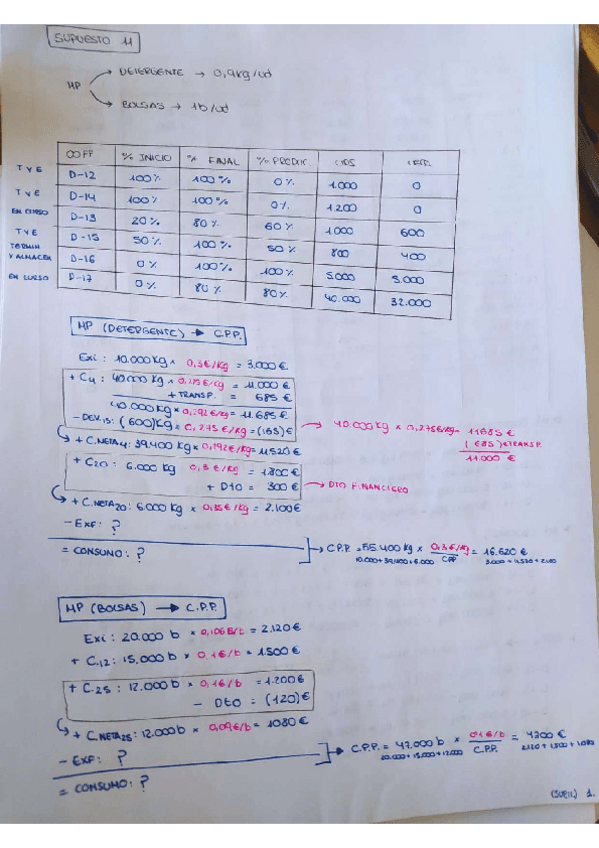 SUPUESTO 11
MP
DETERGENTE → 0,9kg/ud
BOLSAS → 1b/ud
COFF % INICIO % FINAL % PRODUC. UDS
TYE D-12 100% 100% 0% 1.000 0
TYE D-14 100% 100% 0% 1.200 0
EN CURSO D-13 20% 80% 60% 1.000 600
TYE D-15 50% 100% 50% 800 400
TERMIN Y ALMACEN D-16 0% 100% 100% 5.000 5.000
EN CURSO D-17 0% 80% 80% 40.000 32.000
MP (DETERGENTE) → C.P.P.
Exi: 10.000 Kg × 0,3€/Kg = 3.000 €
+ C4: 40.000 Kg × 0,275€/Kg = 11.000 €
+ TRANSP. = 685 €
40.000 Kg × 0,292€/Kg = 11.685 €
- DEV.15: (600)Kg × 0,275 €/Kg = (165)€ → 40.000 Kg × 0,275€/Kg = 11685 €
(685)€ TRANSP.
11.000 €
+ C.NETA4: 39.400 Kg × 0,292€/Kg = 11.520 €
+ C20: 6.000 Kg 0,3 €/Kg = 1.800 €
+ Dto = 300 € → DTO FINANCIERO
+ C.NETA20: 6.000 Kg × 0,35€/Kg = 2.100€
- Exf: ?
= CONSUMO: ?
C.P.P. = 55.400 Kg × 0,3€/Kg = 16.620 €
10.000 + 39.400 + 6.000 CPP 3.000 + 11.520 + 2.100
MP (BOLSAS) → C.P.P.
Exi: 20.000 b × 0,106€/b = 2.120€
+ C.12: 15.000 b × 0,1€/b = 1.500 €
+ C.25: 12.000 b × 0,1€/b = 1.200 €
- Dto = (120)€
+ C.NETA25: 12.000 b × 0,09€/b = 1080 €
- EXF: ?
= CONSUMO: ?
C.P.P. = 47.000 b × 0,1€/b = 4700 €
20.000 + 15.000 + 12.000 C.P.P. 2.120 + 1.500 + 1.080
1.